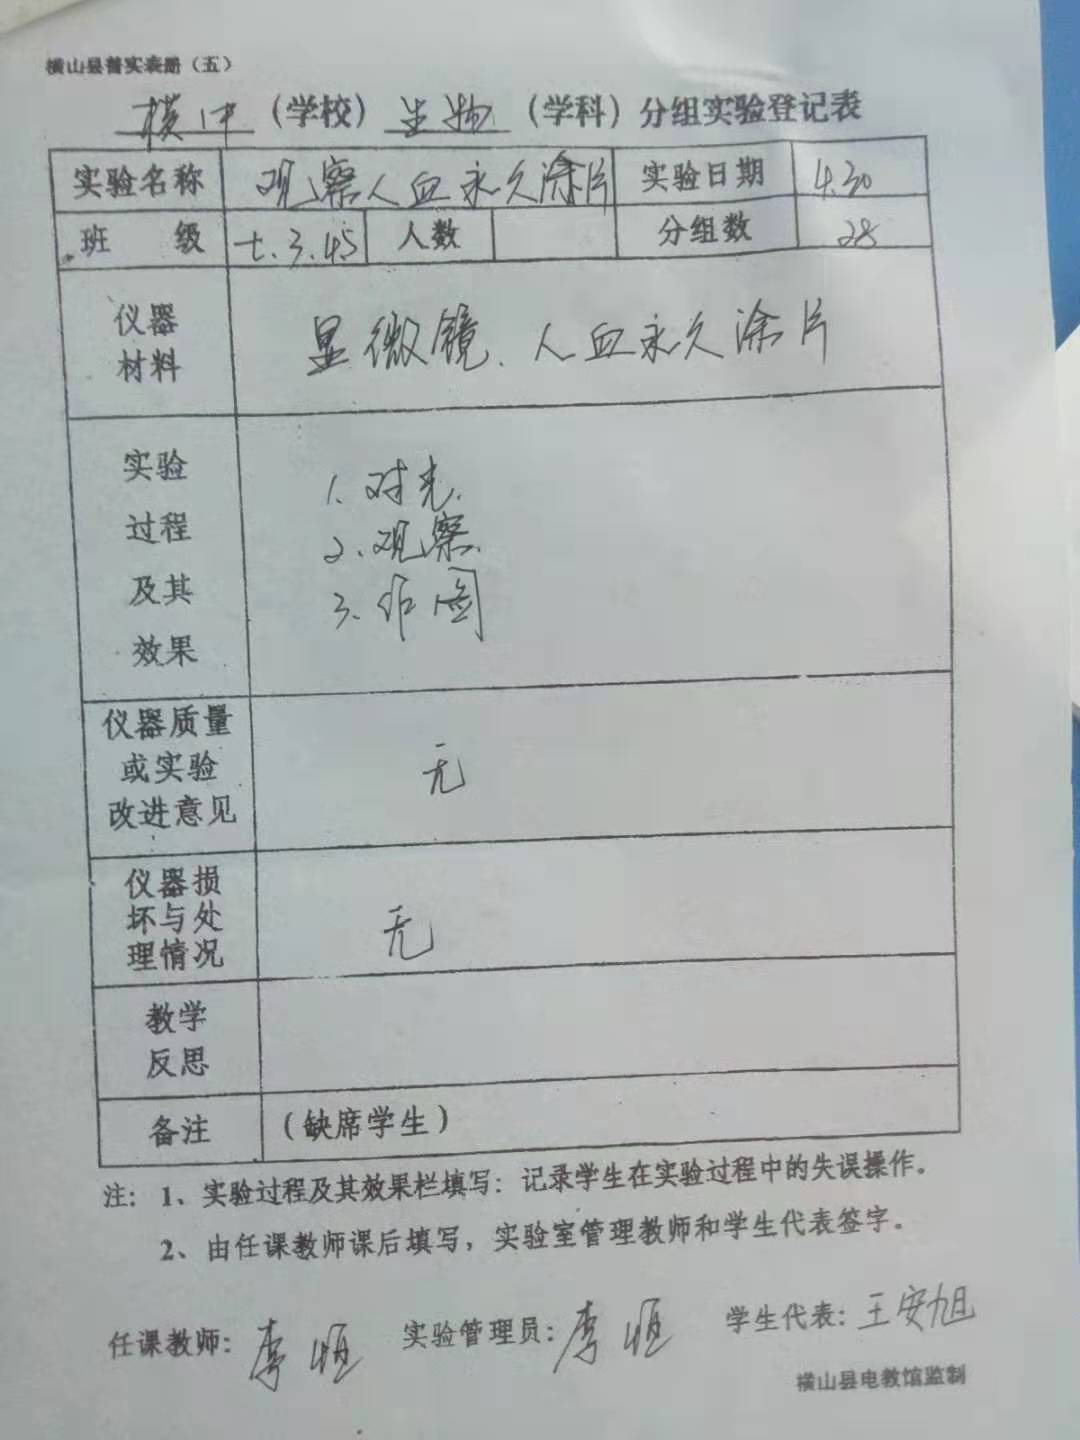 横山县普实表册（五）
横中（学校）生物（学科）分组实验登记表
实验名称 观察人血永久涂片 实验日期 4.30
班 级 七.3.4.5 人数 分组数 28
仪器
材料
显微镜、人血永久涂片
实验
过程
及其
效果
1、对光.
2、观察.
3、作图
仪器质量
或实验
改进意见
无
仪器损
坏与处
理情况
无
教学
反思
备注 （缺席学生）
注：1、实验过程及其效果栏填写：记录学生在实验过程中的失误操作。
2、由任课教师课后填写，实验室管理教师和学生代表签字。
任课教师：李恒 实验管理员：李恒 学生代表：王安旭
横山县电教馆监制